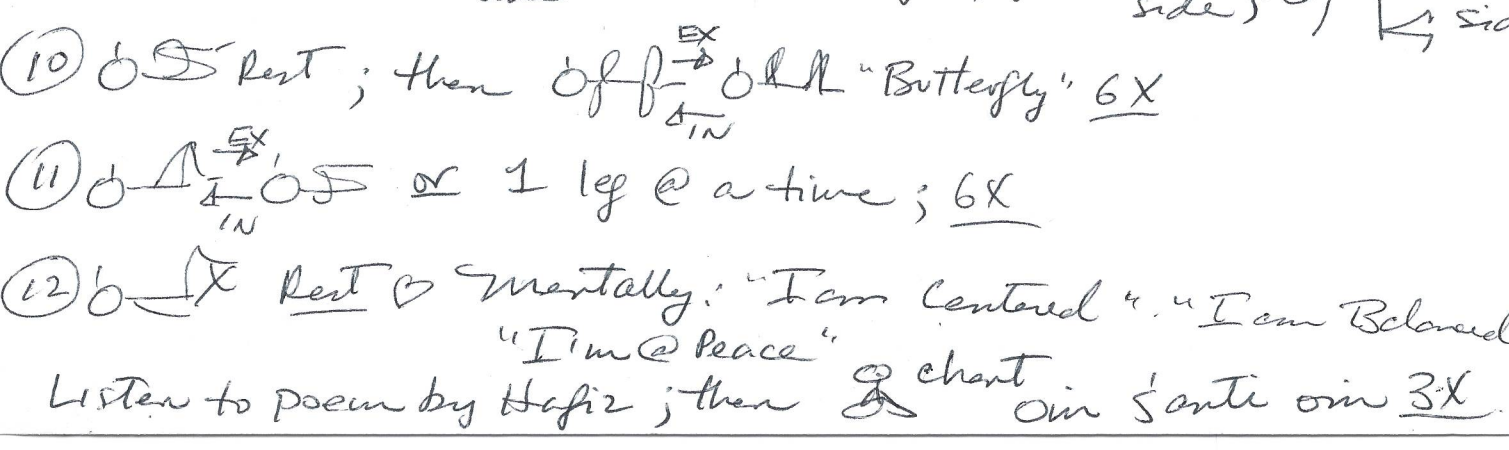 side)
10 Rest ; then EX IN "Butterfly" 6X
11 EX IN or 1 leg @ a time ; 6X
12 Rest ♡ Mentally: "I am Centered". "I am Balanced
"I'm @ Peace"
Listen to poem by Hafiz ; then chant om śanti om 3X